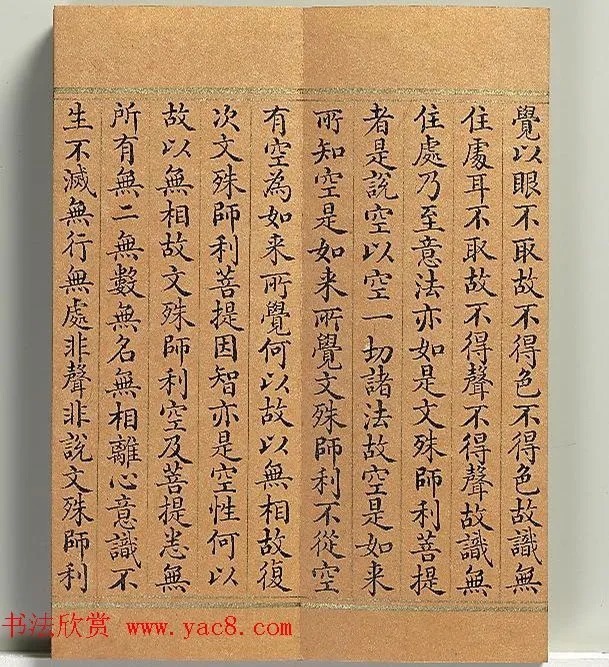 覺以眼不取故不得色不得色故識無
住處耳不取故不得聲不得聲故識無
住處乃至意法亦如是文殊師利菩提
者是說空以空一切諸法故空是如来
所知空是如来所覺文殊師利不從空
有空為如来所覺何以故以無相故復
次文殊師利菩提因智亦是空性何以
故以無相故文殊師利空及菩提悉無
所有無二無數無名無相離心意識不
生不滅無行無處非聲非說文殊師利
书法欣赏 www.yac8.com